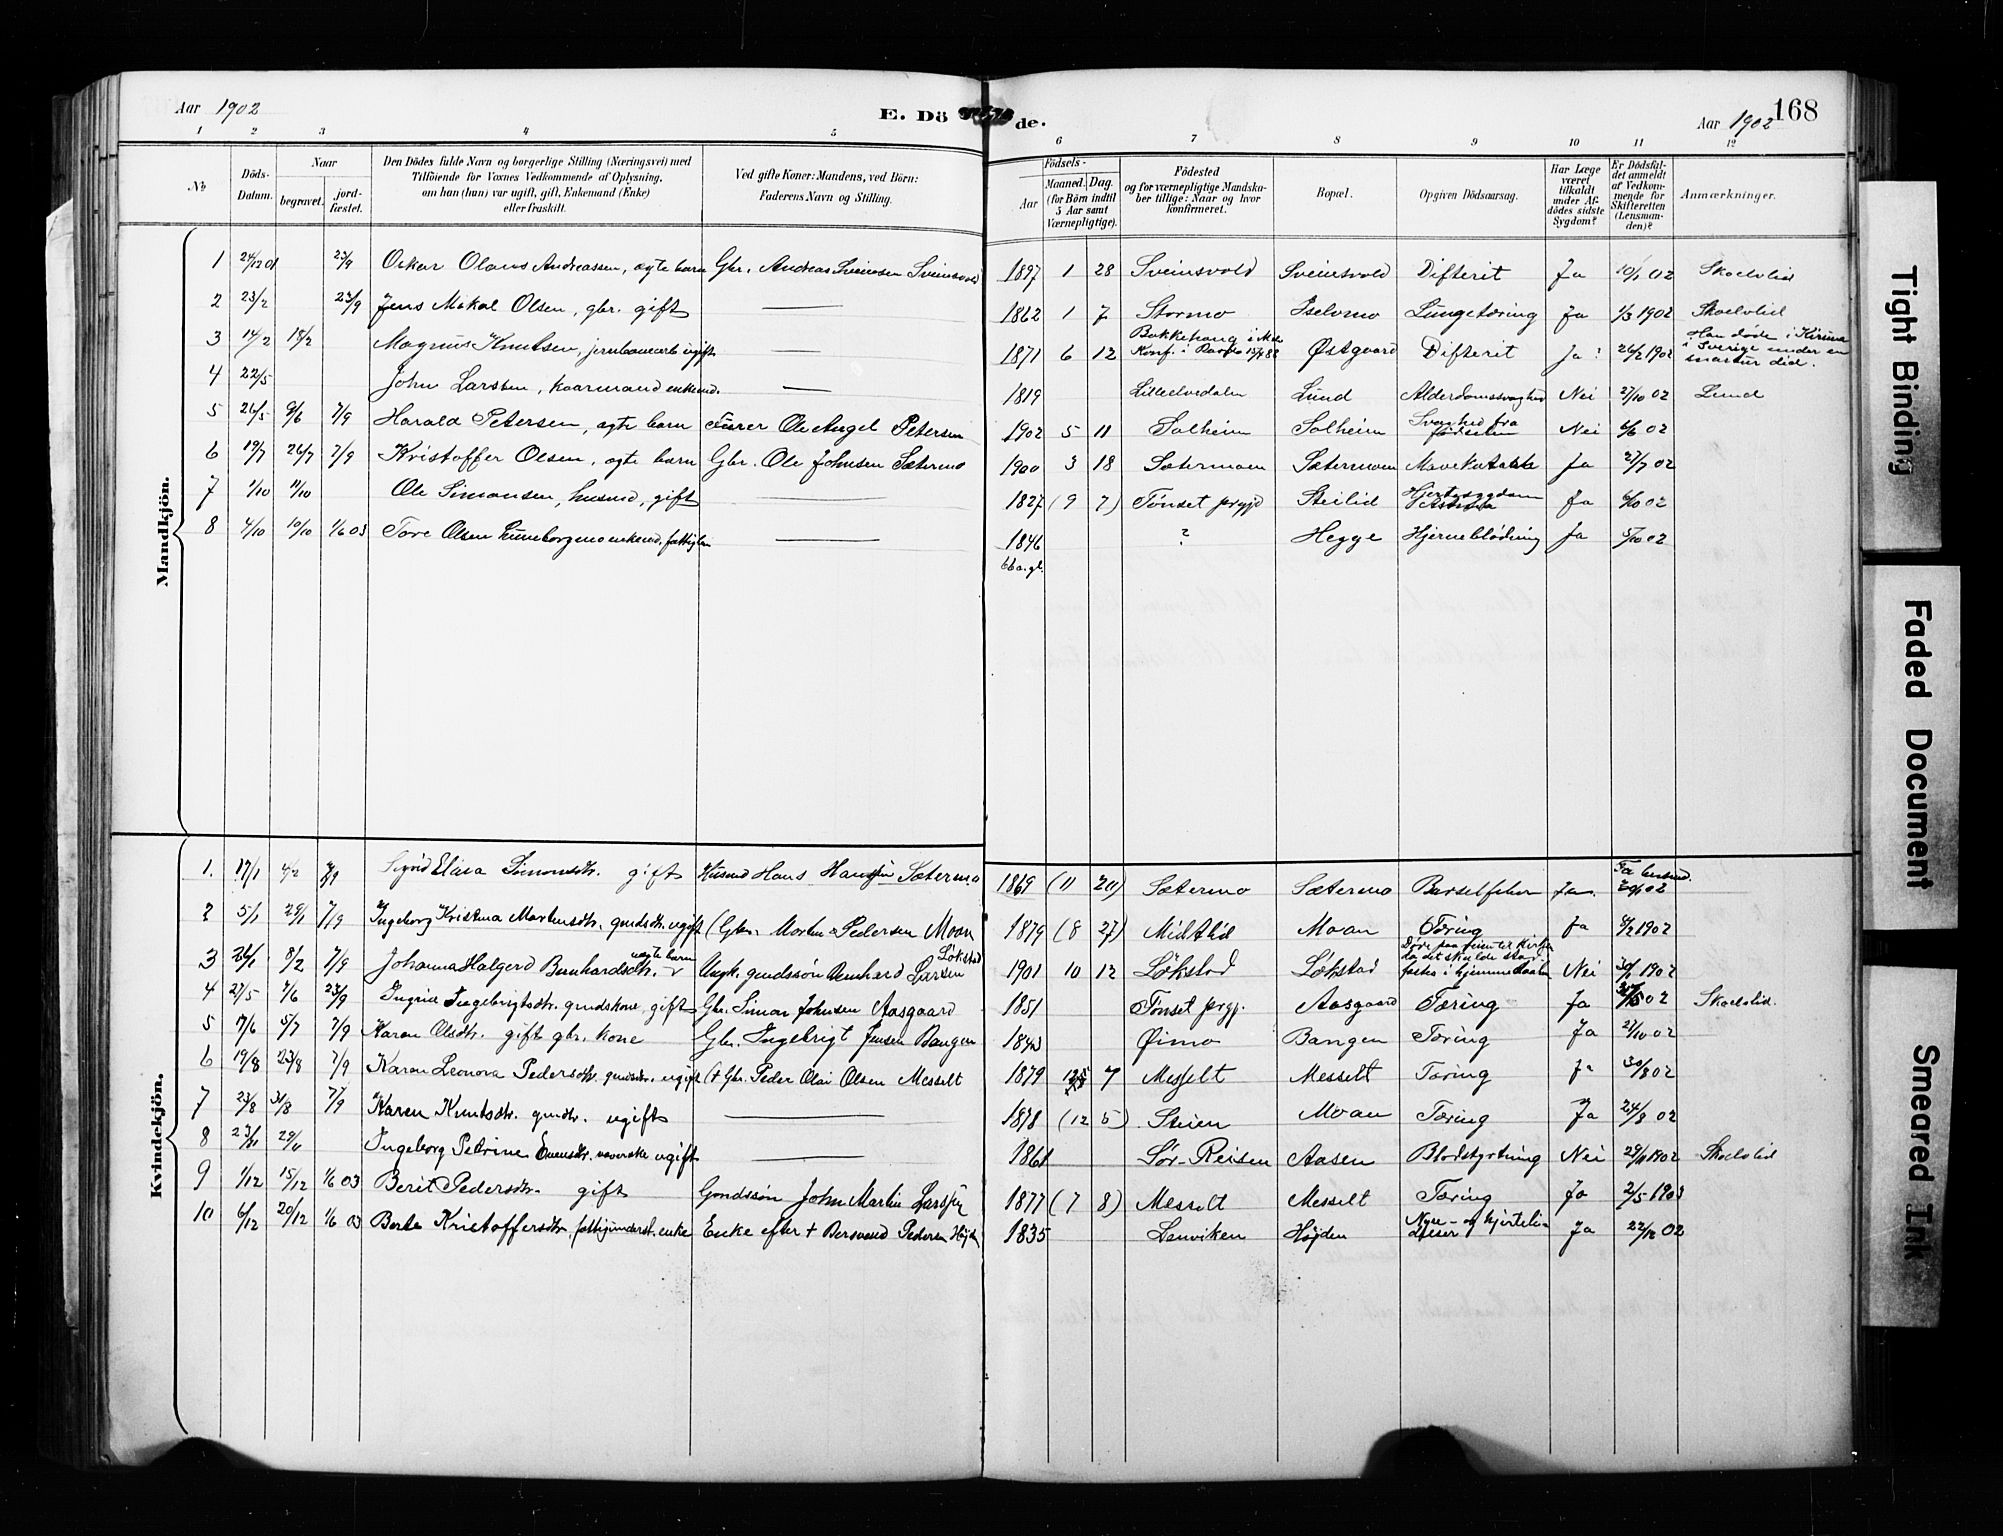 Aar 1902
E. Dö de.
Aar 1902
168
1 2 3 4 5 6 7 8 9 10 11 12
No
Döds-Datum.
Naar
begravet.
jord-fæstet.
Den Dödes fulde Navn og borgerlige Stilling (Næringsvei) med
Tilföiende for Voxnes Vedkommende af Oplysning,
om han (hun) var ugift, gift, Enkemand (Enke)
eller fraskilt.
Ved gifte Koner: Mandens, ved Börn:
Faderens Navn og Stilling.
Födsels-
Aar
Maaned. Dag.
(for Börn indtil
5 Aar samt
Værnepligtige).
Födested
og for værnepligtige Mandska-
ber tillige: Naar og hvor
konfirmeret.
Bopæl.
Opgiven Dödsaarsag.
Har Læge
været
tilkaldt
under Af-
dödes sidste
Sygdom?
Er Dödsfal-
det anmeldt
af Vedkom-
mende for
Skifteretten
(Lensman-
den)?
Anmærkninger.
Mandkjön.
1 24/12 01 23/9 Oskar Olaus Andreassen, ægte barn Gbr. Andreas Svensen Sveinsvold 1897 1 28 Sveinsvold Sveinsvold Difterit Ja 10/1 02 Skoelvlid
2 23/2 23/9 Jens Mikal Olsen, gbr. gift — 1862 1 7 Stormo Iselvmo Lungetæring Ja 1/3 1902 Skoelvlid
3 14/2 18/2 Magnus Knutsen, jernbanearb. ugift 1871 6 12 Bakkehaug i
Konf. i Østgaard Difterit Ja 26/2 1902 Han døde i Kiruna
i Sverige under en
snartur did.
4 22/5 John Larssen, kaarmand enkemd. — 1819 Lilleelvedalen Lund Alderdomssvaghed Nei 27/10 02 Lund
5 26/5 9/6 7/9 Harald Petersen, ægte barn Furer Ole Angel Petersen 1902 5 11 Solheim Solheim Svaghed fra
fødselen Nei 6/6 02
6 19/7 26/7 7/9 Kristoffer Olsen, ægte barn Gbr. Ole Johnsen Sætermo 1900 3 18 Sætermoen Sætermoen Mavekatarrh Ja 27/7 02
7 1/10 11/10 Ole Simonsen, husmd, gift — 1827 (9 7) Tönset prgjd Steilid Hjertesygdom
Ja 6/10 02
8 4/10 10/10 1/6 03 Tore Olsen Lunneborgmo enkemd. fattiglem — 1846 ? Hegge Hjerneblödning Ja 5/10 02
66 a. gl.
Kvindekjön.
1. 17/1 4/2 7/9 Sigrid Elisa Simonsdtr. gift Husmd Hans Hansen Sætermo 1869 (11 20) Sætermo Sætermo Barselfeber Ja. 20/1 02
2 5/1 29/1 7/9 Ingeborg Kristina Martinsdtr. gmdsdtr. ugift (Gbr. Morten Pedersen Moan 1879 (8 27) Midtlid Moan Tæring Ja 4/2 1902
3 26/1 8/2 7/9 Johanna Halgerd Bernhardsdtr. uægte barn Ungk. gmdssön Bernhard Larsen Løkstad 1901 10 12 Løkstad Løkstad Døde paa veien til kirken
da det skulde
fæstes i hjemmedaaben Nei 30/1 1902
4 27/5 7/6 23/9 Ingrid Ingebrigtsdtr. gmdskone, gift Gbr. Simon Johnsen Aasgaard 1851 Tönset prgj. Aasgaard Tæring Ja 02 Skoelvlid.
5 17/6 5/7 7/9 Karen Olsdtr. gift gbr. kone Gbr. Ingebrigt Jensen Bangen 1843 Øimo Bangen Tæring Ja 27/10 02
6 19/8 23/8 7/9 Karen Leonora Pedersdtr. gmdsdtr. ugift (+ Gbr. Peder Olai Olsen Messelt 1879 7 Messelt Messelt Tæring Ja 30/8 02
7 23/8 31/8 7/9 Karen Knutsdtr. gmdtr. ugift — 1878 (12 5) Steien Moan Tæring Ja 24/8 02
8 29/11 Ingeborg Petrine Evensdtr. væverske ugift — 1861 Sör-Reisen Aasen Blodstyrtning Nei 29/11 1902 Skoelvlid
9 1/12 15/12 1/6 03 Berit Pedersdtr. gift Gmdssön John Martin Larssen 1877 (7 8) Messelt Messelt Tæring Ja 2/5 1903
10 6/12 20/12 1/6 03 Berte Kristoffersdtr. fattigunderst. enke Enke efter + Bersvend Pedersen Höiden 1835 Lenviken Höiden Nyre- og hjerteli-
delser Ja 22/12 02
Tight Binding
Faded Document
Smeared Ink